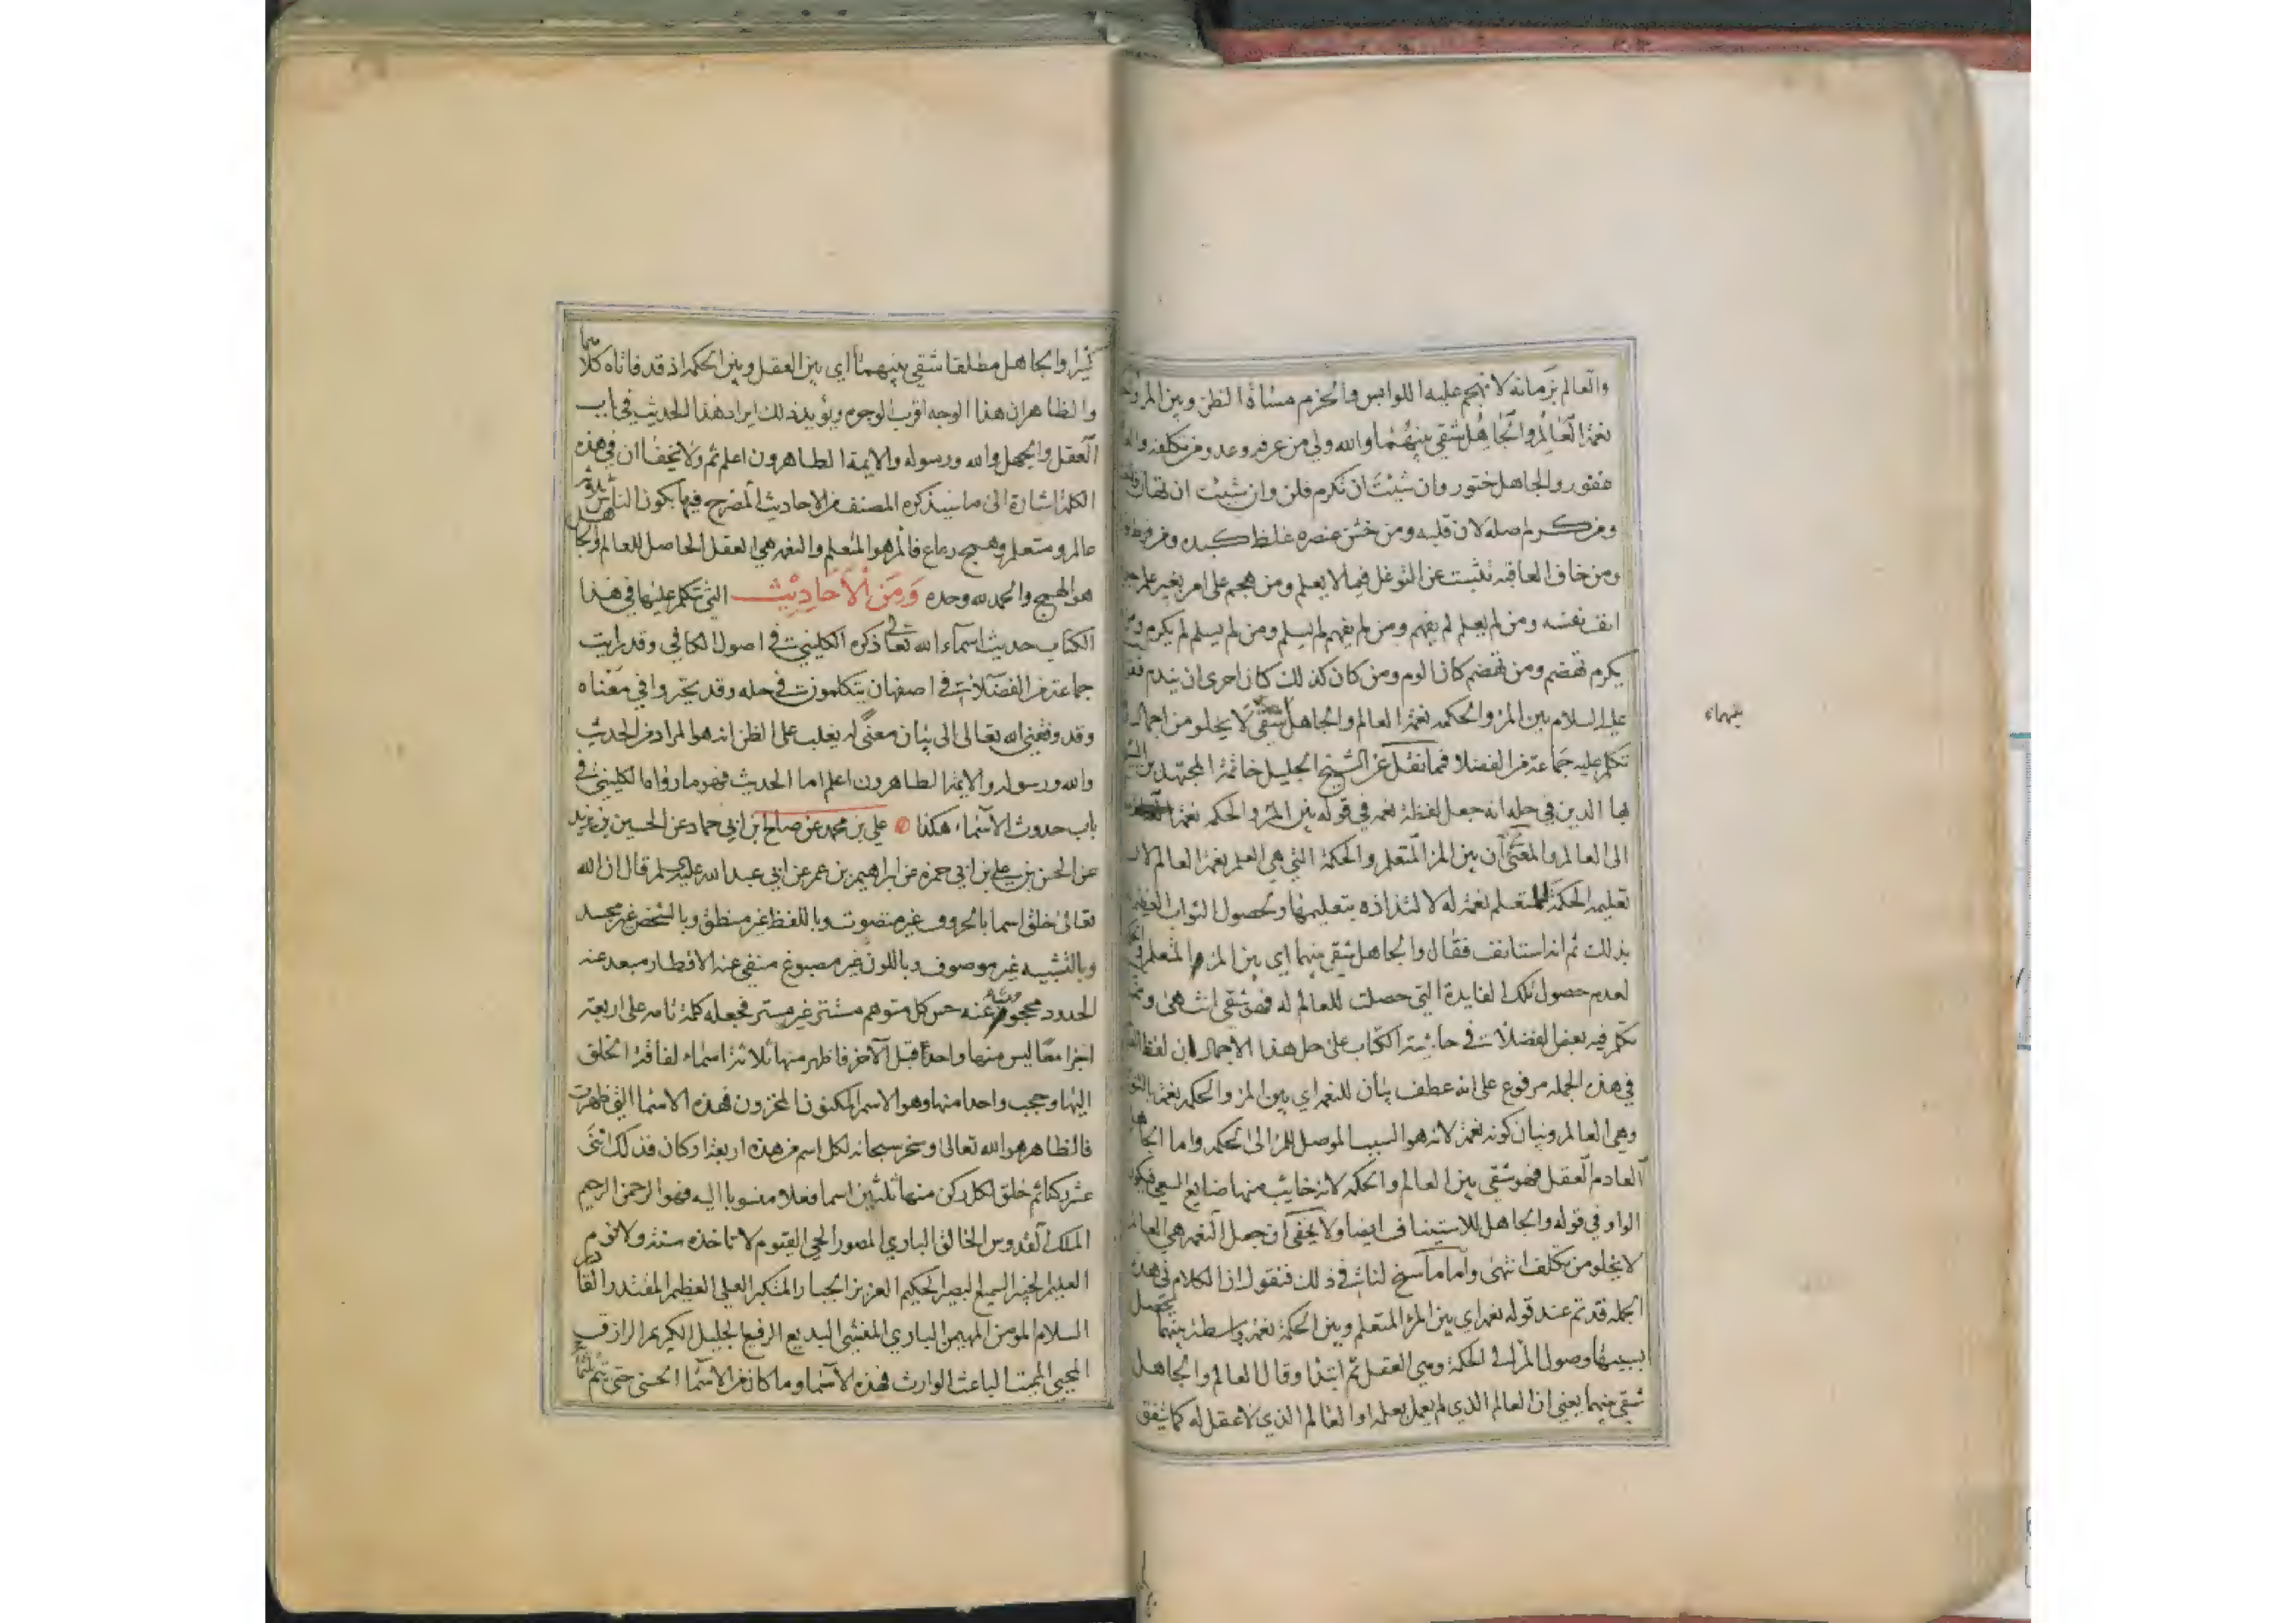 والعالم بزمانه لا تهجم عليه اللوابس والحزم مساءة الظن وبين المرء
نعمة العالم والجاهل شقي بينهما والله ولي من عرفه وعدو من تكلفه
غفور والجاهل ختور وان شئت ان تكرم فلن وان شئت ان تهان
ومن كرم اصله لان قلبه ومن خشن عنصره غلظ كبده ومن فرط
ومن خاف العاقبة تثبت عن التوغل فيما لا يعلم ومن هجم على امر بغير علم
انف نفسه ومن لم يعلم لم يفهم ومن لم يفهم لم يسلم ومن لم يسلم لم يكرم ومن
يكرم تهضم ومن تهضم كان الوم ومن كان كذلك كان احرى ان يندم
عليه السلام بين المرء والحكمة نعمة العالم والجاهل شقي لا يخلو من اجمال
بينهما
تكلم عليه جماعة من الفضلا فما نقل عن الشيخ الجليل خاتمة المجتهدين
بها الدين في حله انه جعل لفظة نعمه في قوله بين المرء والحكمه نعمة
الى العالم والمعنى ان بين المرء المتعلم والحكمة التي هي العلم نعمة العالم لان
تعليمه الحكمة للمتعلم نعمة له لالتذاذه بتعليمها وتحصول الثواب
بذلك ثم انه استانف فقال والجاهل شقي بينهما اي بين المرء المتعلم
لعدم حصول تلك الفايدة التي حصلت للعالم له فهو شقي انتهى
تكلم فيه بعض الفضلاء في حاشية الكتاب على حل هذا الاجمال ان لفظ
في هذه الجمله مرفوع على انه عطف بيان للنعمه اي بين المرء والحكمه نعمة
وهي العالم وبيان كونه نعمة لانه هو السبب الموصل للمرء الى الحكمه واما الجاهل
العادم العقل فهو شقي بين العالم والحكمه لانه خايب منها ضايع السعي
الواو في قوله والجاهل للاستيناف ايضا ولا يخفى ان جعل النعمه هي
لا يخلو من تكلف انتهى واما ما سنح لنا في ذلك فنقول ان الكلام في هذه
الجمله قد تم عند قوله نعمه اي بين المرء المتعلم وبين الحكمة نعمة واسطة بينهما يحصل
بسببها وصول المرء الى الحكمة وهي العقل ثم ابتدا وقال العالم والجاهل
شقي بينهما يعني ان العالم الذي لم يعمل بعلمه او العالم الذي لا عقل له كما يتفق
كثيرا والجاهل مطلقا شقي بينهما اي بين العقل وبين الحكمه اذ قد فاتاه كلاهما
والظاهر ان هذا الوجه اقرب الوجوه ويؤيد ذلك ايراد هذا الحديث في باب
العقل والجهل والله ورسوله والايمة الطاهرون اعلم ثم ولا يخفا ان في هذه
الكلمة اشارة الى ما سيذكره المصنف من الاحاديث المصرح فيها بكون الناس ثلاثه
عالم ومتعلم وهمج رعاع فالمرء هو المتعلم والنعمه هي العقل الحاصل للعالم والجاهل
هو الهمج والحمد لله وحده ومن الاحاديث التي تكلم عليها في هذا
الكتاب حديث اسماء الله تعالى ذكره الكليني في اصول الكافي وقد رايت
جماعة من الفضلاء في اصفهان يتكلمون في حله وقد تحيروا في معناه
وقد وفقني الله تعالى الى بيان معنى له يغلب على الظن انه هو المراد من الحديث
والله ورسوله والايمة الطاهرون اعلم اما الحديث فهو ما رواه الكليني في
باب حدوث الاسماء هكذا علي بن محمد عن صالح ابن ابي حماد عن الحسين بن يزيد
عن الحسن بن علي بن ابي حمزه عن ابراهيم بن عمر عن ابي عبد الله عليه السلم قال ان الله
تعالى خلق اسما بالحروف غير متصوت وباللفظ غير منطق وبالشخص غير مجسد
وبالتشبيه غير موصوف وباللون غير مصبوغ منفي عنه الاقطار مبعد عنه
الحدود محجوب عنه حس كل متوهم مستتر غير مستر فجعله كلمة تامه على اربعة
اجزا معا ليس منها واحدا قبل الاخر فاظهر منها ثلاثة اسماء لفاقة الخلق
اليها وحجب واحدا منها وهو الاسم المكنون المخزون فهذه الاسما التي ظهرت
فالظاهر هو الله تعالى وسخر سبحانه لكل اسم من هذه اربعة اركان فذلك اثنى
عشر ركنا ثم خلق لكل ركن منها ثلثين اسما فعلا منسوبا اليه فهو الرحمن الرحيم
الملك القدوس الخالق الباري المصور الحي القيوم لا تاخذه سنة ولا نوم
العليم الخبير السميع البصير الحكيم العزيز الجبار المتكبر العلي العظيم المقتدر القادر
السلام المومن المهيمن الباري المنشي البديع الرفيع الجليل الكريم الرازق
المحيي المميت الباعث الوارث فهذه الاسما وما كان من الاسما الحسنى حتى تتم